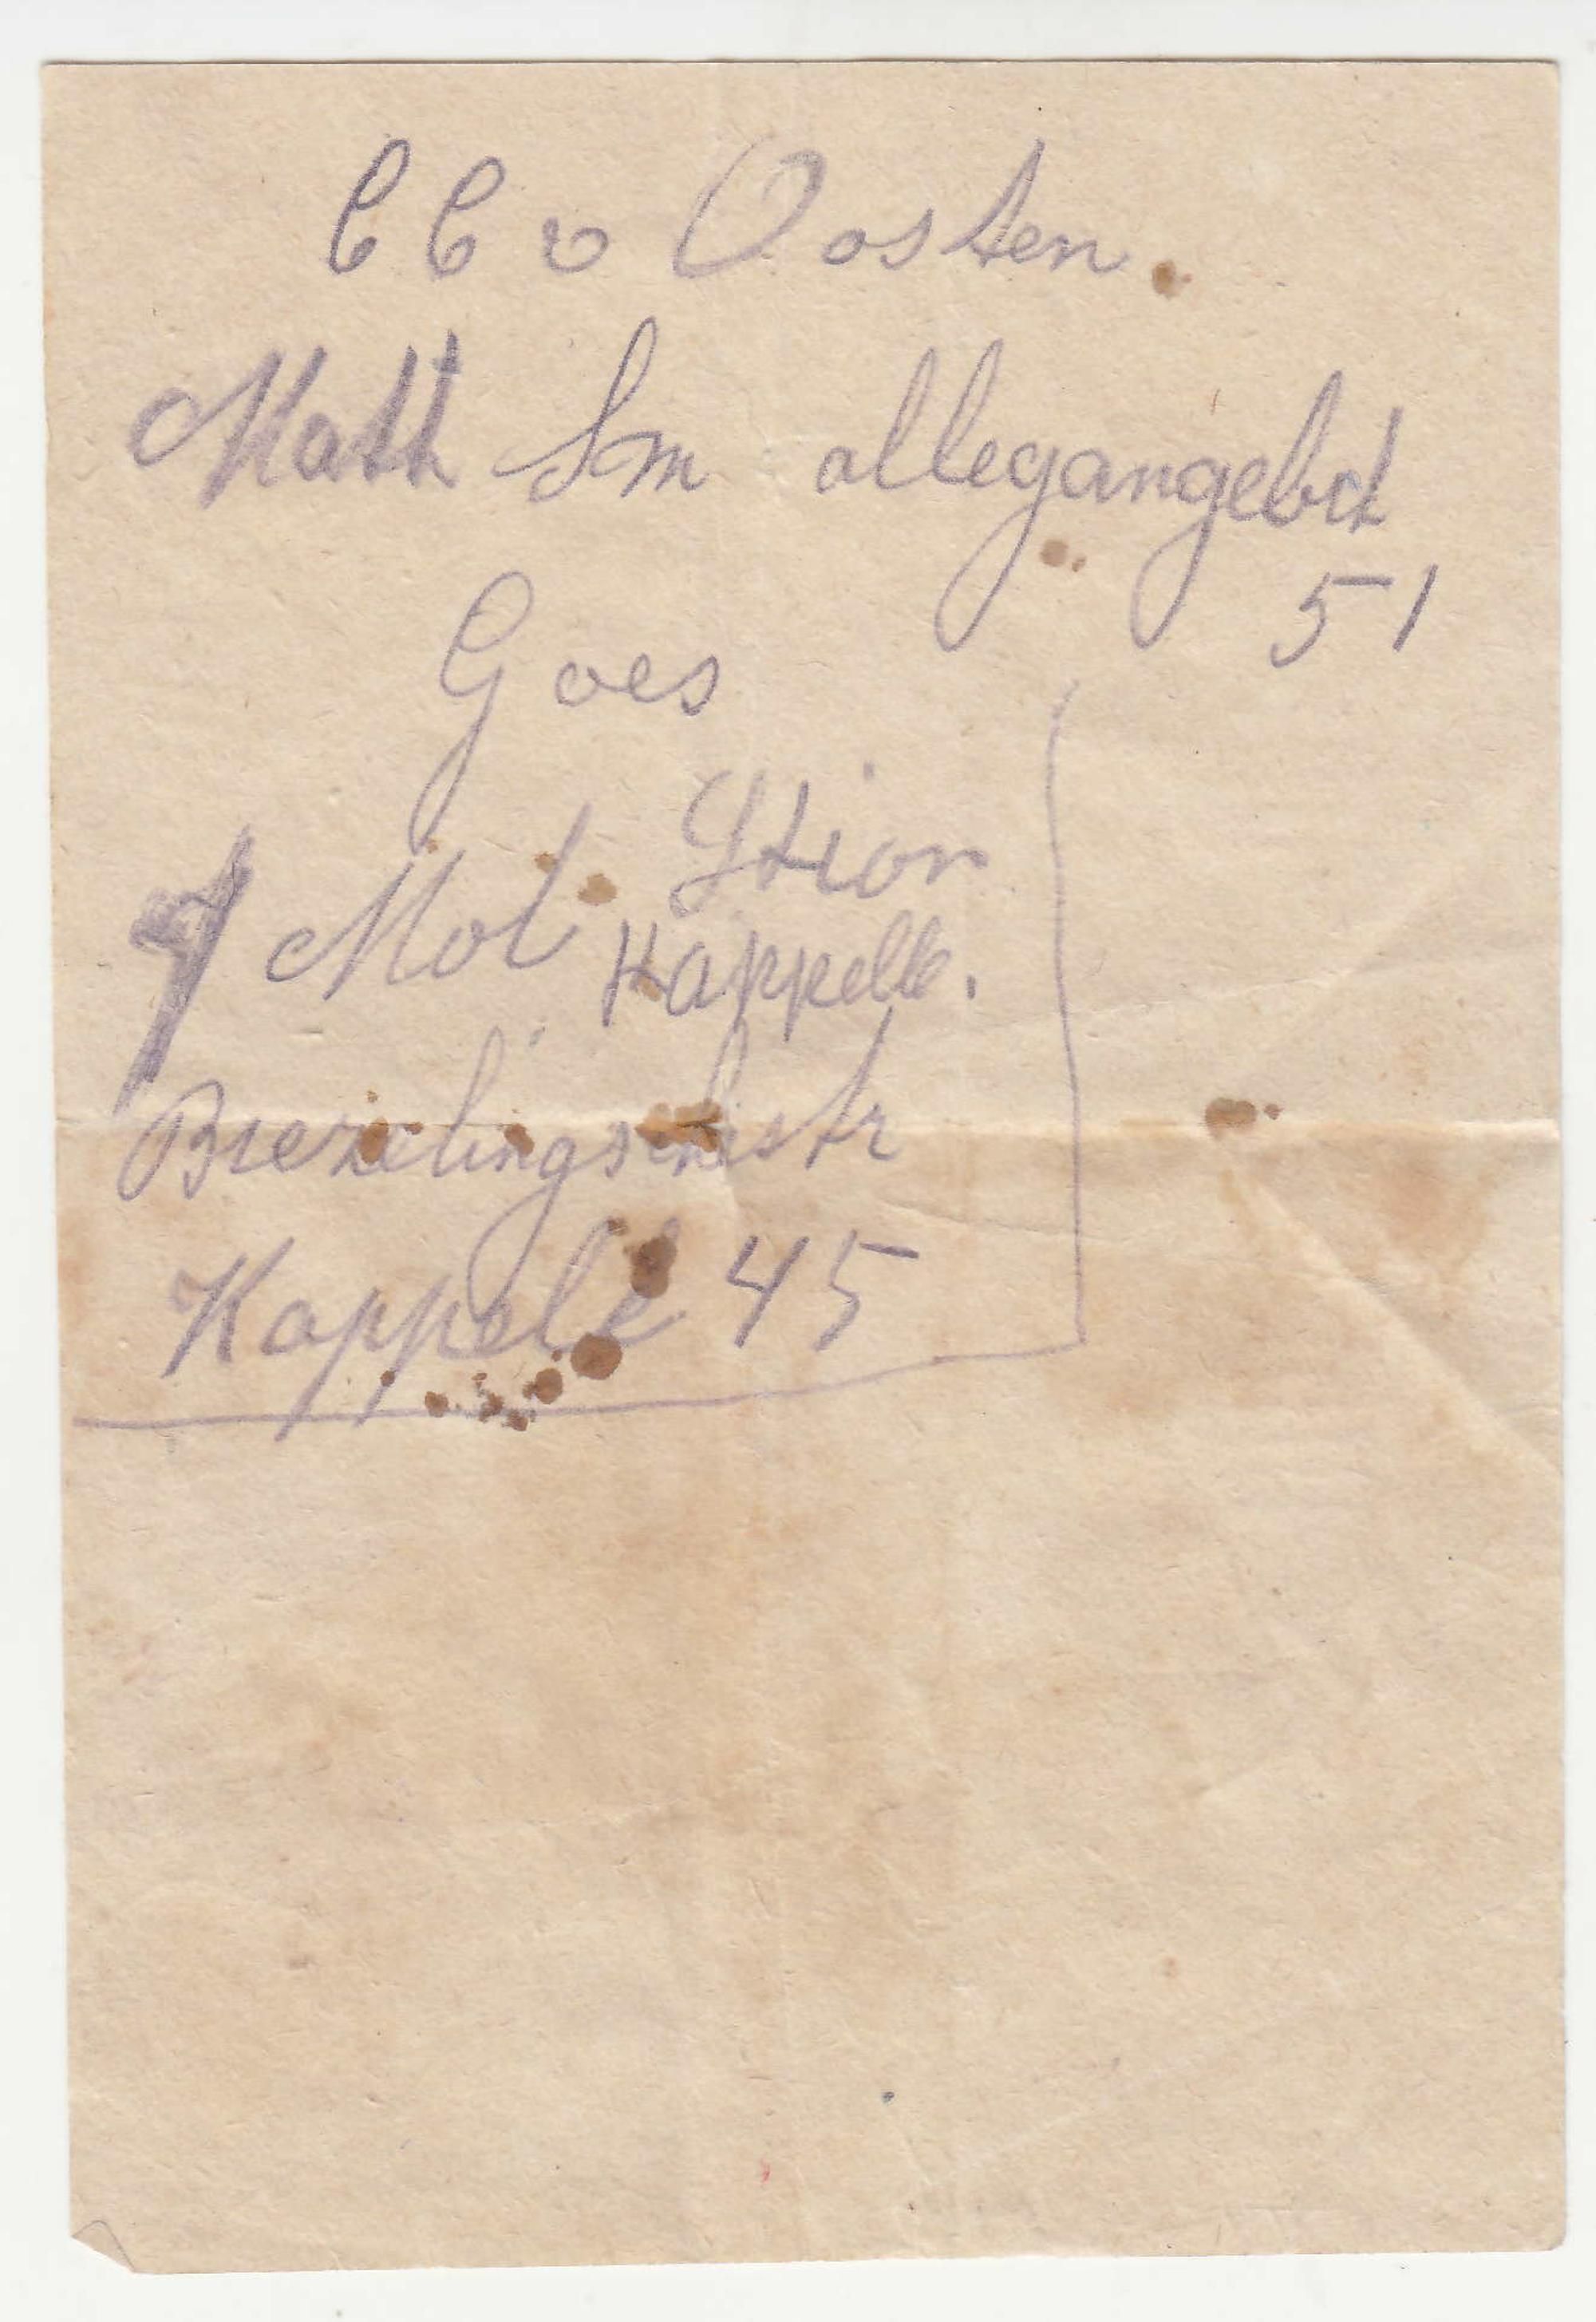 C C v Oosten.
Matth Smallegangebd
51
Goes
J Mol. Stion
Kappelle.
Biezelingschestr
Kappele 45